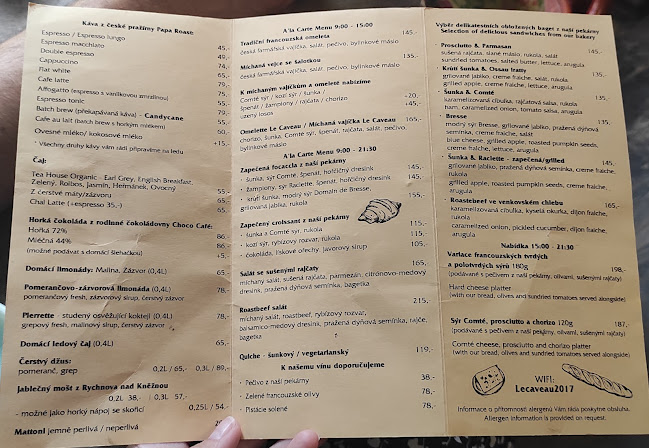 Káva z české pražírny Papa Roast:
Espresso / Espresso lungo 45,-
Espresso macchiato 49,-
Double espresso 74,-
Cappuccino 65,-
Flat white 79,-
Cafe latte 79,-
Affogatto (espresso s vanilkovou zmrzlinou)
Espresso tonic
Batch brew (překapávaná káva) - Candycane
Cafe au lait (batch brew s horkým mlékem)
Ovesné mléko/ kokosové mléko +15,-
- Všechny druhy kávy vám rádi připravíme na ledu
Čaj:
Tea House Organic - Earl Grey, English Breakfast,
Zelený, Roibos, Jasmín, Heřmánek, Ovocný 55,-
Z čerstvé máty/zázvoru 65,-
Chai Latte (+espresso 35,-)
Horká čokoláda z rodinné čokoládovny Choco Café:
Hořká 72% 86,-
Mléčná 44% 86,-
(možné podávat s domácí šlehačkou)
Domácí limonády: Malina, Zázvor (0,4L) 65,-
Pomerančovo-zázvorová limonáda (0,4L) 78,-
pomerančový fresh, zázvorový sirup, čerstvý zázvor
Pierrette - studený osvěžující koktejl (0,4L) 78,-
grepový fresh, malinový sirup, čerstvý zázvor
Domácí ledový čaj (0,4L) 65,-
Čerstvý džus:
pomeranč, grep 0,2L / 65,- 0,3L / 89,-
Jablečný mošt z Rychnova nad Kněžnou
0,2L 38,- | 0,3L 57,-
- možné jako horký nápoj se skořicí 0,25L / 54,-
Mattoni jemně perlivá / neperlivá
A'la Carte Menu 9:00 - 15:00
Tradiční francouzská omeleta 145,-
česká farmářská vajíčka, salát, pečivo, bylinkové máslo
Míchaná vejce se šalotkou 135,-
česká farmářská vajíčka, salát, pečivo, bylinkové máslo
K míchaným vajíčkům a omeletě nabízíme
Comté sýr / kozí sýr / šunka /
špenát / žampiony / rajčata / chorizo -20,-
uzený losos -45,-
Omelette Le Caveau / Míchaná vajíčka Le Caveau 165,-
chorizo, šunka, Comté sýr, špenát, rajčata, salát, pečivo,
bylinkové máslo
A'la Carte Menu 9:00 - 21:30
Zapečená focaccia z naší pekárny
- šunka, sýr Comté, špenát, hořčičný dresink 135,-
- žampiony, sýr Raclette, špenát, hořčičný dresink 135,-
- krůtí šunka, modrý sýr Domain de Bresse, 135,-
grilovaná jablka, rukola
Zapečený croissant z naší pekárny
- šunka a Comté sýr, rukola 115,-
- kozí sýr, rybízový rozvar, rukola 115,-
- čokoláda, lískové ořechy, javorový sirup 105,-
Salát se sušenými rajčaty 165,-
míchaný salát, sušená rajčata, parmezán, citrónovo-medový
dresink, pražená dýňová semínka, bagetka
Roastbeef salát 215,-
míchaný salát, roastbeef, rybízový rozvar,
balsamico-medový dresink, pražená dýňová semínka, rajče,
bagetka
Quiche - šunkový / vegetariánský 119,-
K našemu vínu doporučujeme
- Pečivo z naší pekárny 38,-
- Zelené francouzské olivy 78,-
- Pistácie solené 78,-
Výběr delikatestních obložených baget z naší pekárny
Selection of delicious sandwiches from our bakery
- Prosciutto & Parmasan 145,-
sušená rajčata, slané máslo, rukola, salát
sundried tomatoes, salted butter, lettuce, arugula
- Krůtí šunka & Ossau Iraty 135,-
grilovaná jablko, creme fraiche, salát, rukola
grilled apple, creme fraiche, lettuce, arugula
- Šunka & Comté 135,-
karamelizovaná cibulka, rajčatová salsa, rukola
ham, caramelized onion, tomato salsa, arugula
- Bresse 135,-
modrý sýr Bresse, grilované jablko, pražená dýňová
semínka, creme fraiche, salát
blue cheese, grilled apple, roasted pumpkin seeds,
creme fraiche, lettuce, arugula
- Šunka & Raclette - zapečená/grilled 135,-
grilované jablko, pražená dýňová semínka, creme fraiche,
rukola
grilled apple, roasted pumpkin seeds, creme fraiche,
arugula
Roastbeef ve venkovském chlebu 165,-
karamelizovaná cibulka, kyselá okurka, dijon fraiche,
rukola
caramelized onion, pickled cucumber, dijon fraiche,
arugula
Nabídka 15:00 - 21:30
Variace francouzských tvrdých
a polotvrdých sýrů 180g 198,-
(podávané s pečivem z naší pekárny, olivami, sušenými rajčaty)
Hard cheese platter
(with our bread, olives and sundried tomatoes served alongside)
Sýr Comté, prosciutto a chorizo 120g 187,-
(podávané s pečivem z naší pekárny, olivami, sušenými rajčaty)
Comté cheese, prosciutto and chorizo platter
(with our bread, olives and sundried tomatoes served alongside)
WIFI:
Lecaveau2017
Informace o přítomnosti alergenů Vám ráda poskytne obsluha.
Allergen information is provided on request.